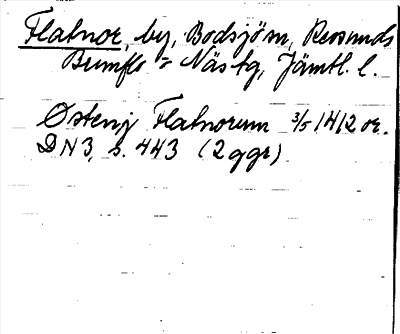 Flatnor, by, Bodsjö sn, Revsunds
Brunflo o Näs tg, Jämtl. l.
Østen j Flatnorum 3/5 1412 or.
DN 3, s. 443 (2 ggr)